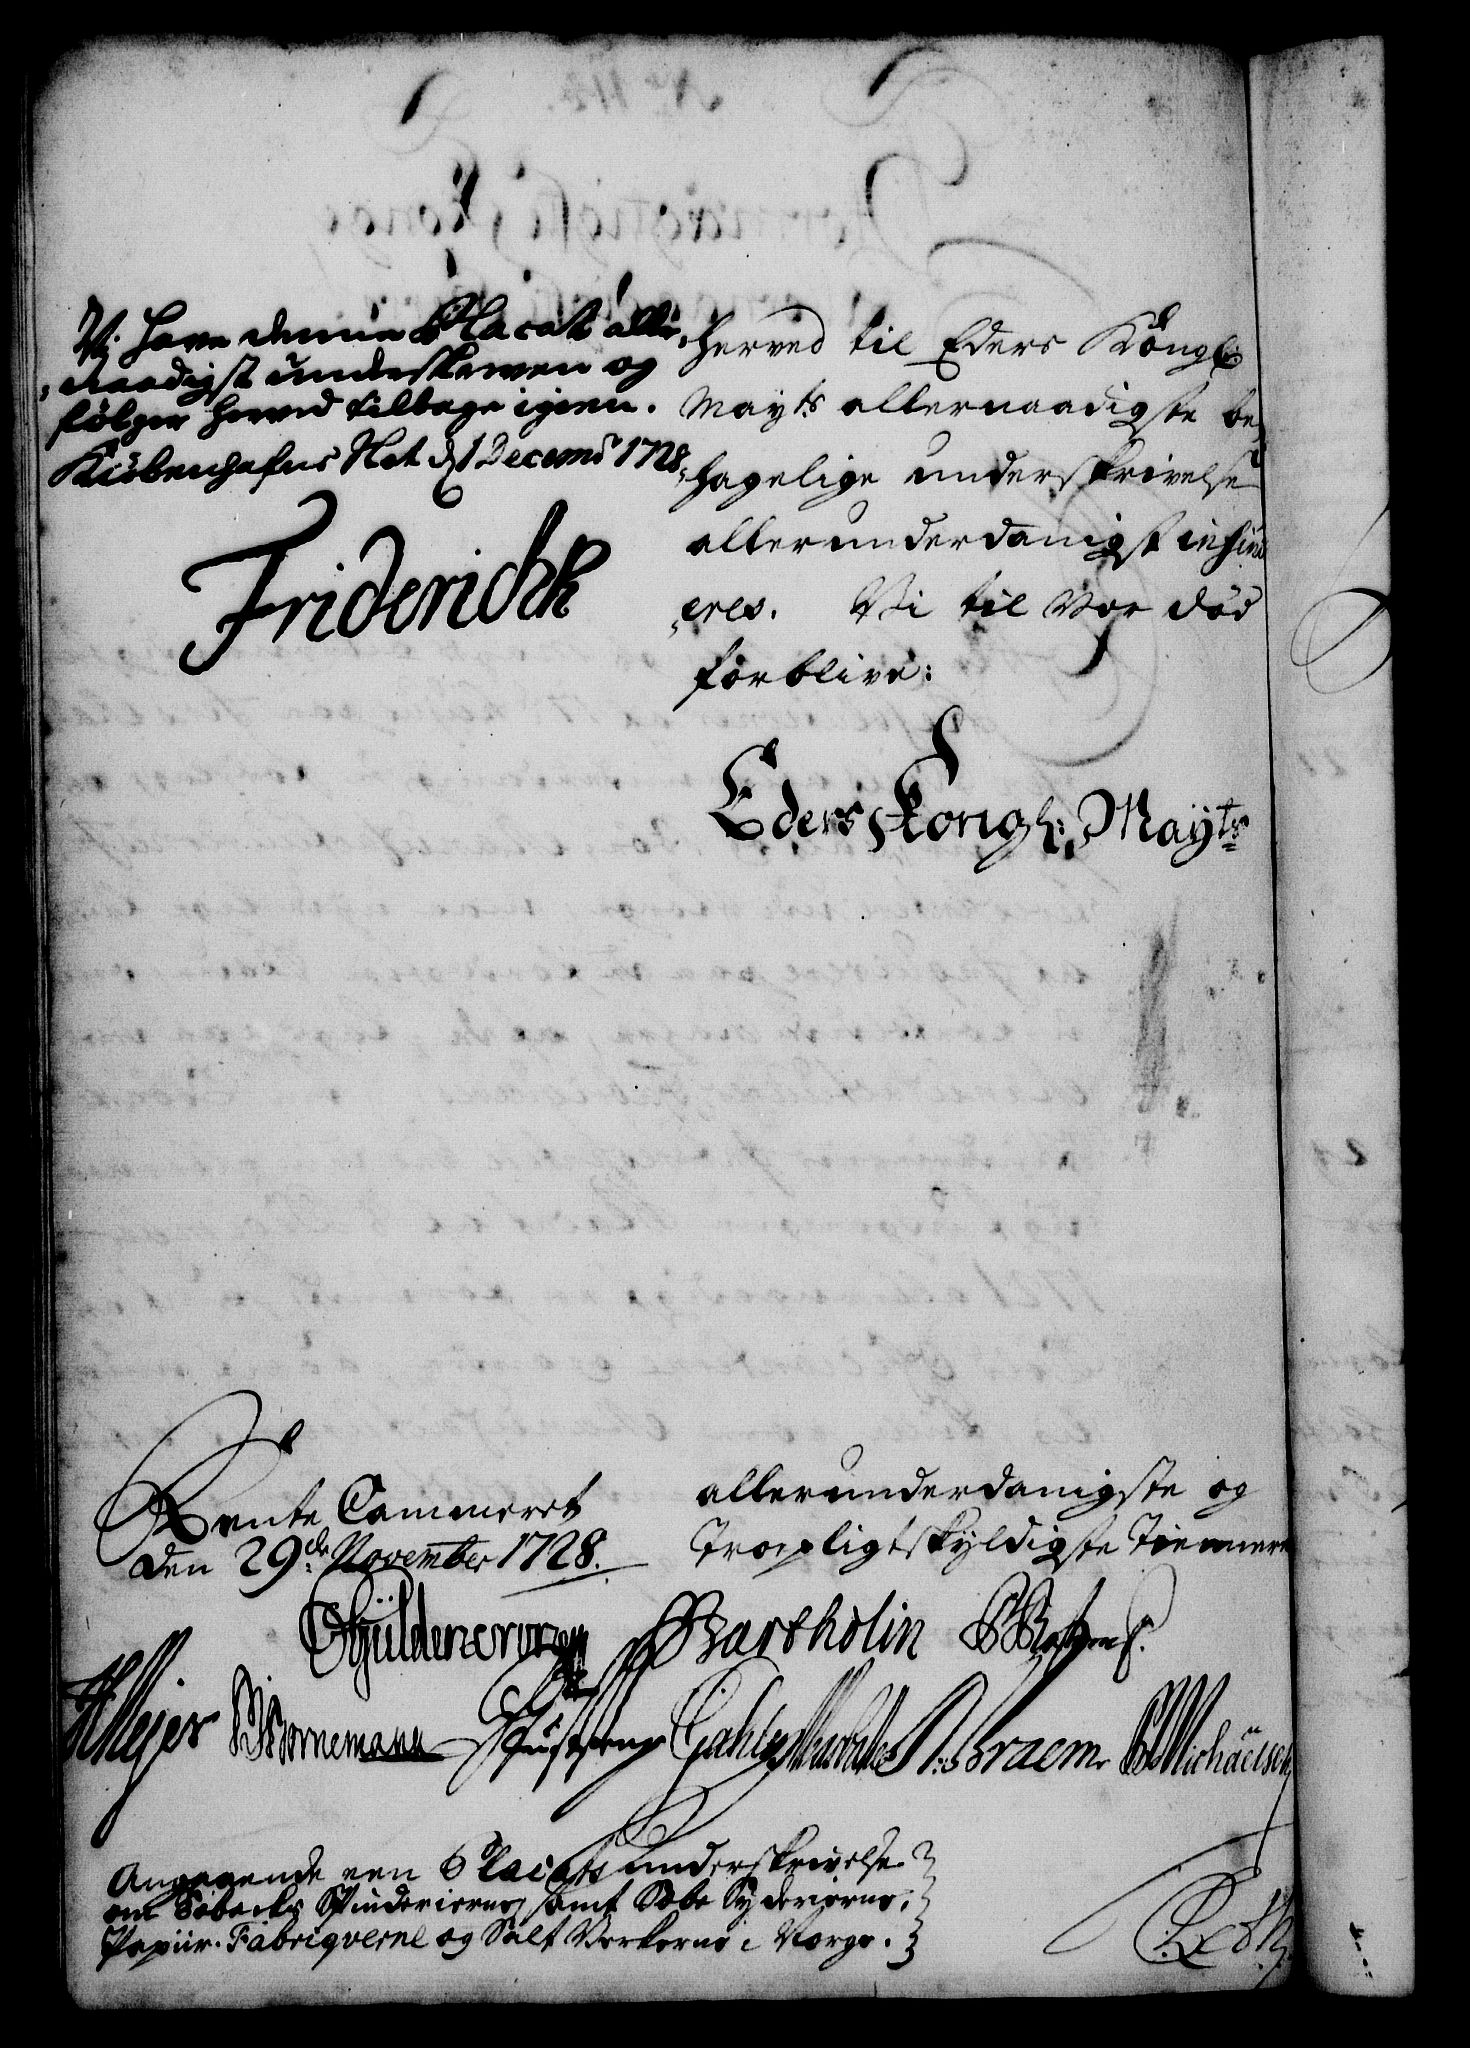 Vi have denne Placat aller„
„naadigst underskreven og
følger herved tilbage igien.
Kiöbenhafns Slot d 1 Decembr 1728
Friderich R
herved til Eders Kongl:
Mayts allernaadigste be„
„hagelige underskrivelse
allerunderdanigst insinu
„eres. Vi til Vor död
forblive:
Eders Kongl: Mayts
Rente Cammeret
den 29de November 1728.
allerunderdanigste og
Troepligtskyldigste Tiennere
Güldencrone
Bartholin
Meyer
Bornemann
Braem
Michaelsen
Angaaende een Placats underskrivelse
om Tobacks Spinderierne, samt Sæbe Syderierne,
Papiir-Fabriqverne og Salt Verkerne i Norge.